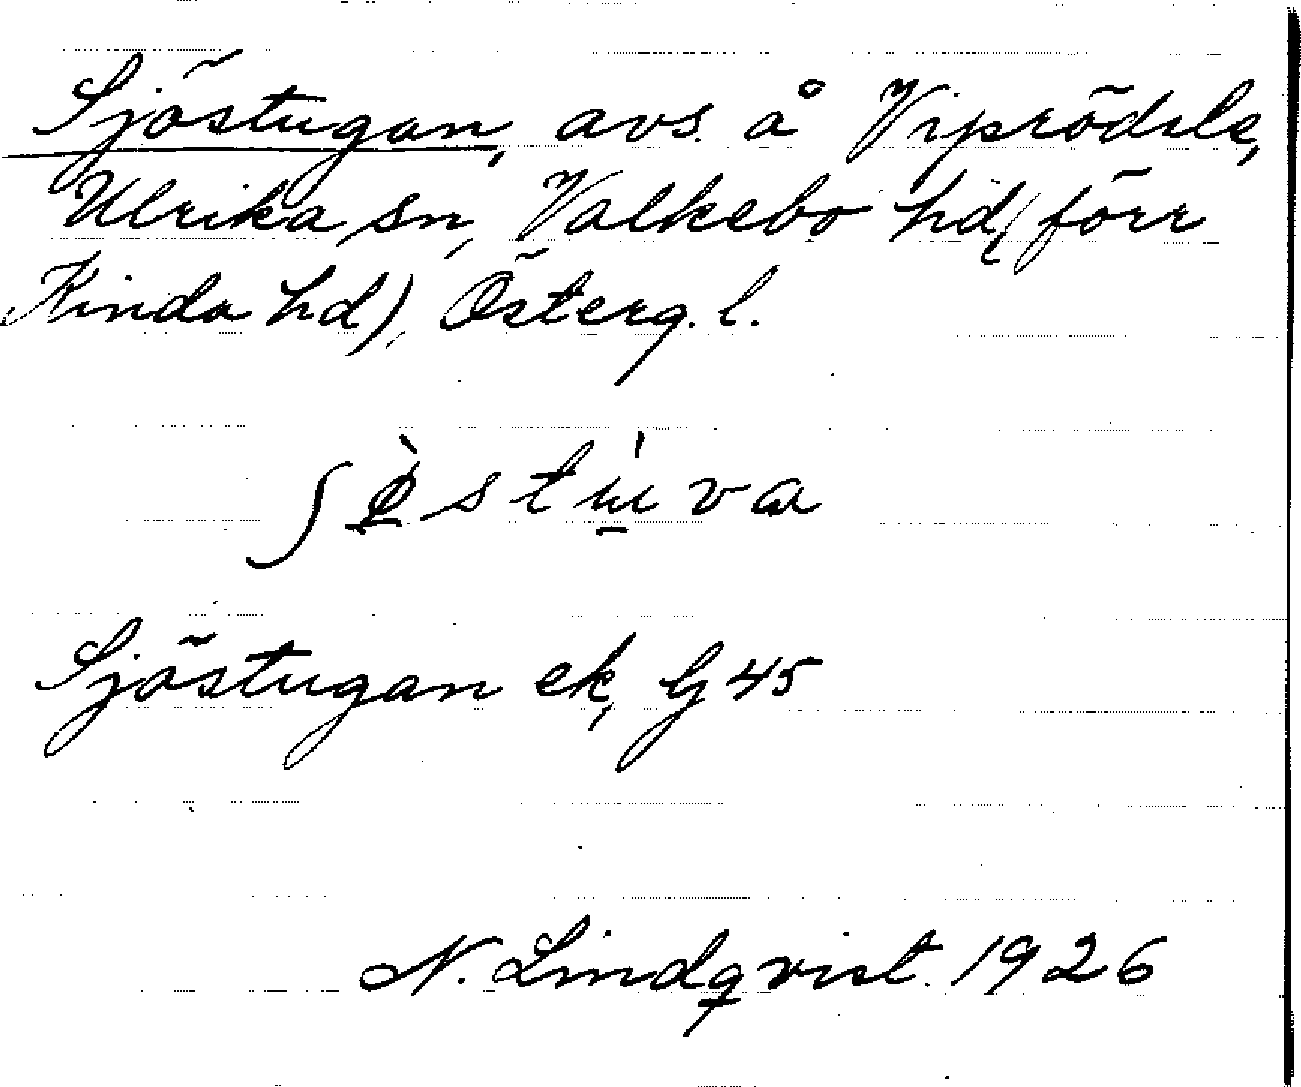 Sjöstugan, avs. å Viprödsle,
Ulrika sn, Valkebo hd, (förr
Kinda hd), Österg. l.
ʃø̀stu̇va
Sjöstugan ek, G 45
N. Lindqvist 1926